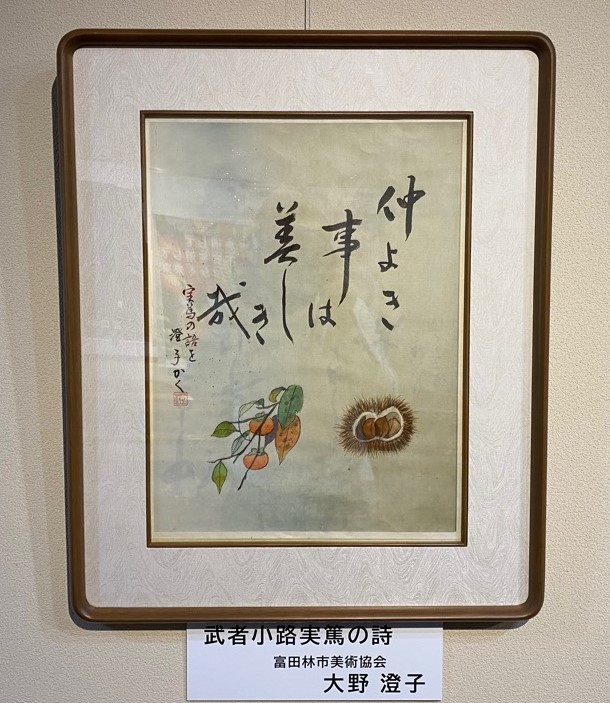 仲よき
事は
美しき
哉
実篤の語を
澄子かく
武者小路実篤の詩
富田林市美術協会
大野 澄子